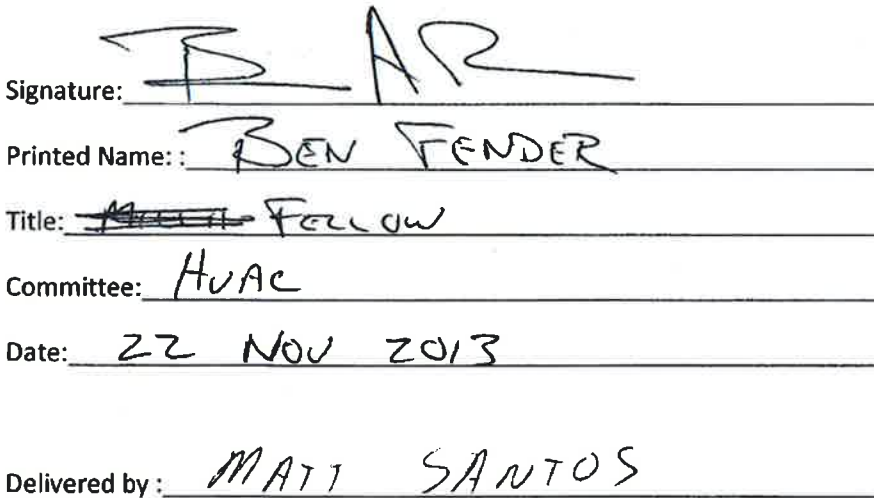 Signature:
Printed Name: : BEN FENDER
Title: FELLOW
Committee: HVAC
Date: 22 NOV 2013
Delivered by : MATT SANTOS